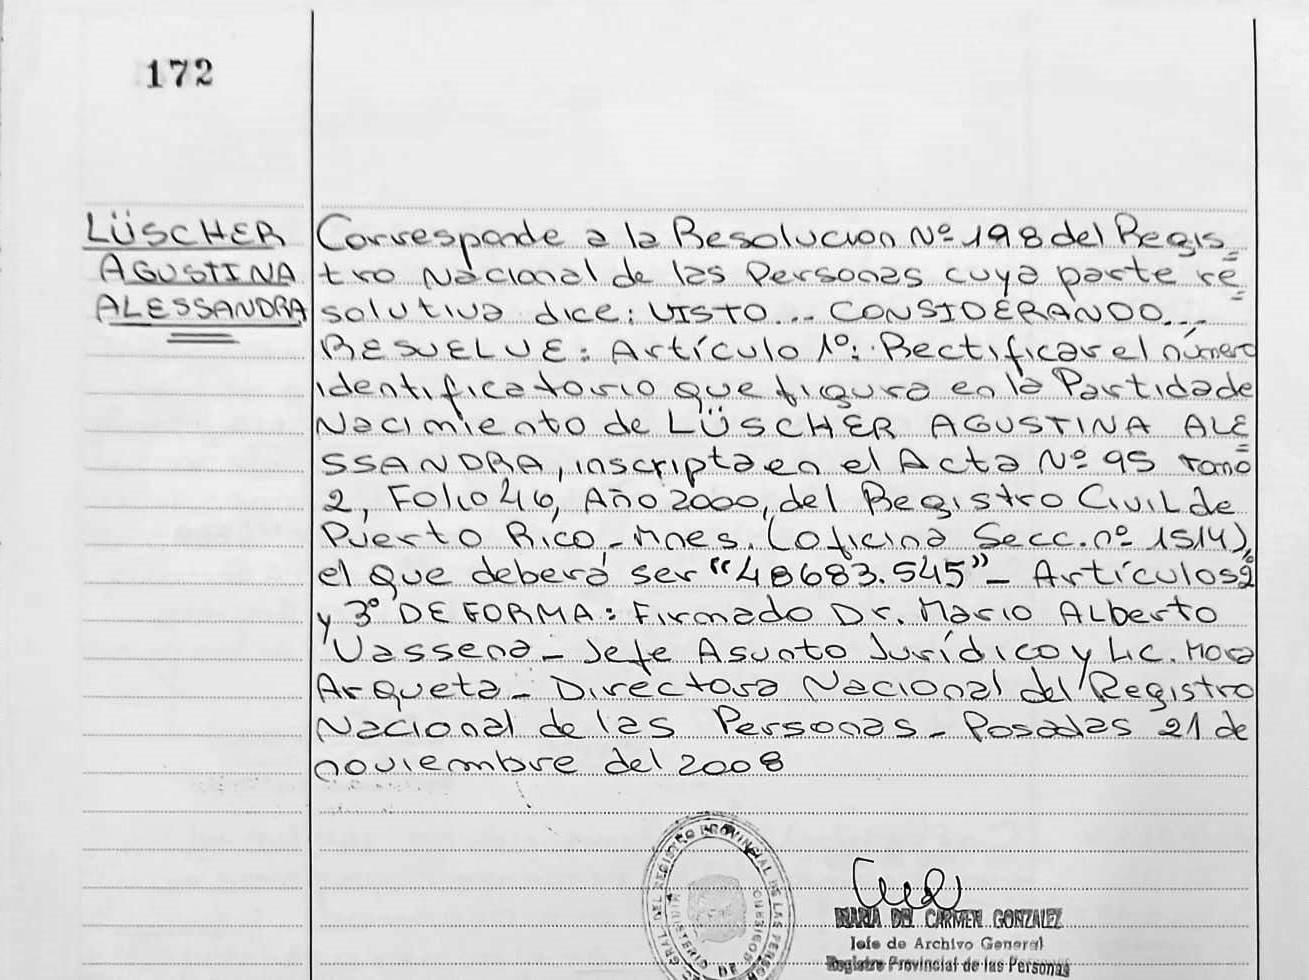 172
LÜSCHER
AGUSTINA
ALESSANDRA
Corresponde a la Resolucion Nº 198 del Regis=
tro Nacional de las Personas cuya parte re=
solutiva dice: VISTO... CONSIDERANDO...
RESUELVE: Artículo 1º: Rectificar el número
identificatorio que figura en la Partida de
Nacimiento de LÜSCHER AGUSTINA ALE=
SSANDRA, inscripta en el Acta Nº 95 Tomo
2, Folio 46, Año 2000, del Registro Civil de
Puerto Rico,- Mnes. (oficina Secc. nº 1514),
el que deberá ser "48683.545"- Artículos 2º
y 3º DE FORMA: Firmado Dr. Mario Alberto
Vassena - Jefe Asunto Jurídico y Lic. Mora
Arqueta - Directora Nacional del Registro
Nacional de las Personas - Posadas 21 de
noviembre del 2008
REGISTRO PROVINCIAL DE LAS
MINISTERIO DE GOBIERNO
MARIA DEL CARMEN GONZALEZ
Jefe de Archivo General
Registro Provincial de las Personas